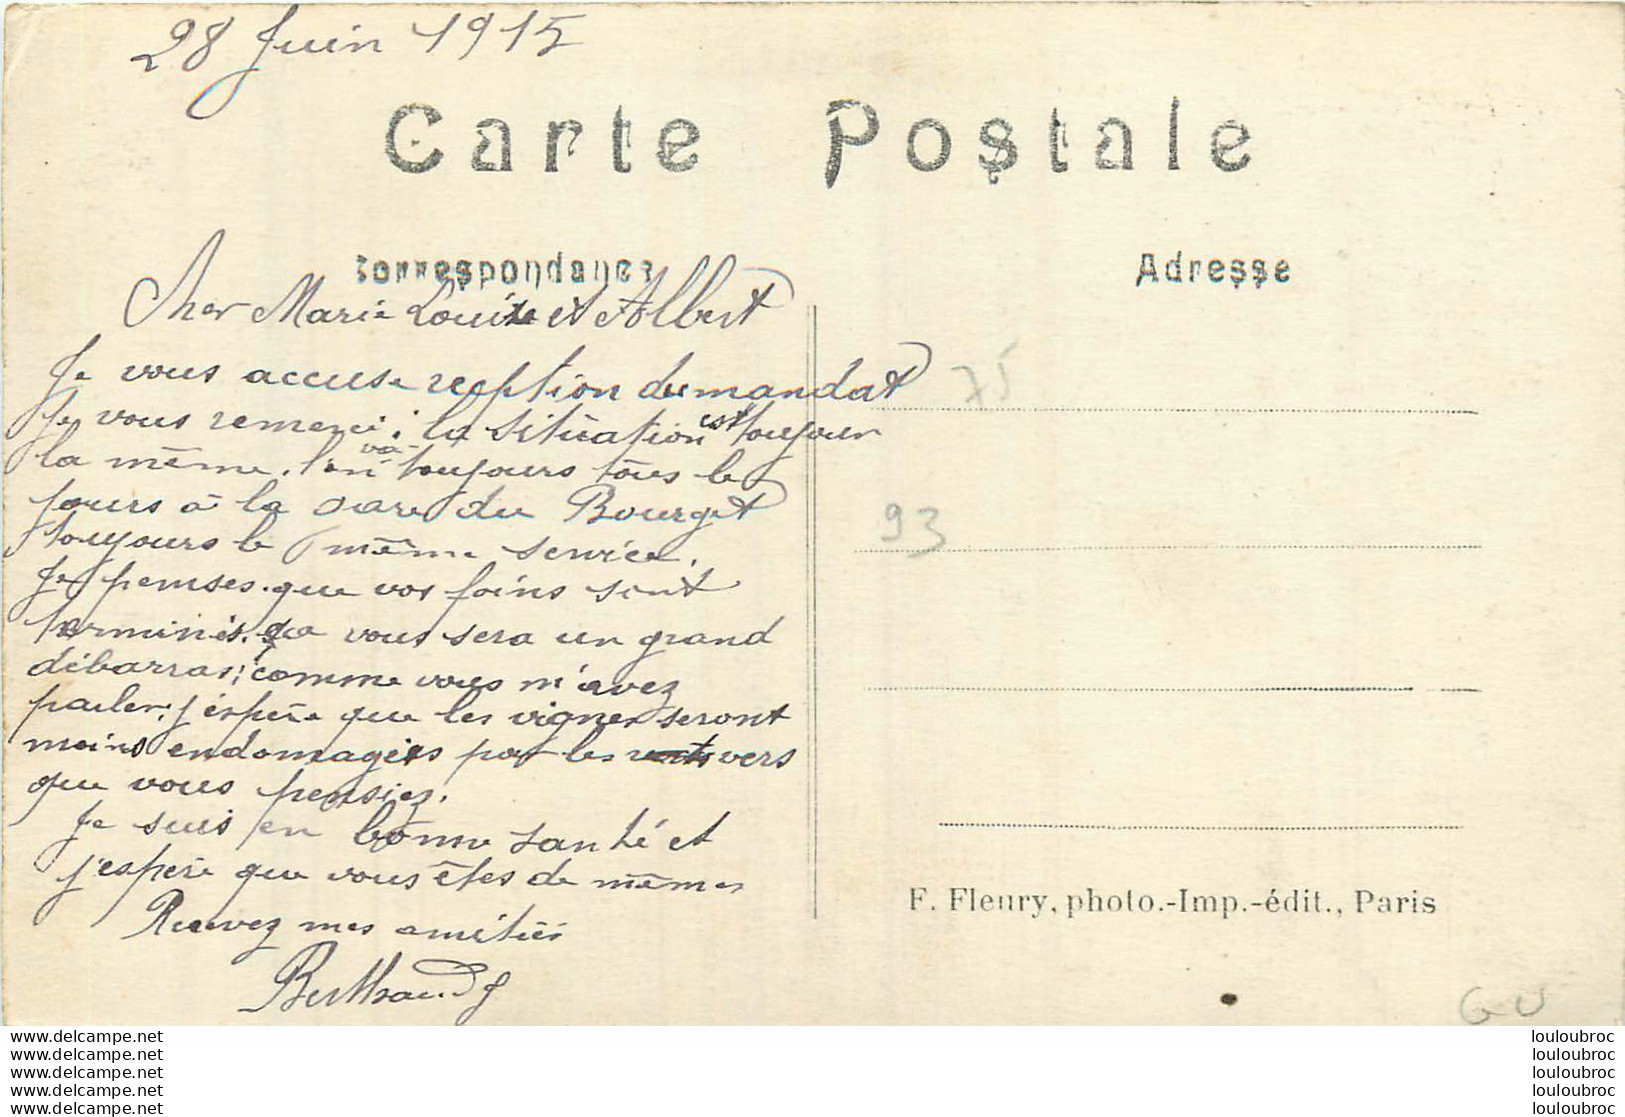 28 Juin 1915
Carte Postale
Correspondance
Adresse
Cher Marie Louise et Albert
Je vous accuse reception du mandat
Je vous remerci; la sitùation est toujour
la même. l'on va toujours tous le
jours à la Gare du Bourget
toujours le même service.
Je penses que vos foins sont
terminés. ça vous sera un grand
débarras; comme vous m'avez
parler, j'éspère que les vignes seront
moins endomagés par les vers
que vous pensiez.
Je suis en bonne santé et
j'espère que vous êtes de mêmes
Recevez mes amitiés
75
93
F. Fleury, photo.-Imp.-édit., Paris
GU
www.delcampe.net
www.delcampe.net
www.delcampe.net
www.delcampe.net
www.delcampe.net
louloubroc
louloubroc
louloubroc
louloubroc
louloubroc